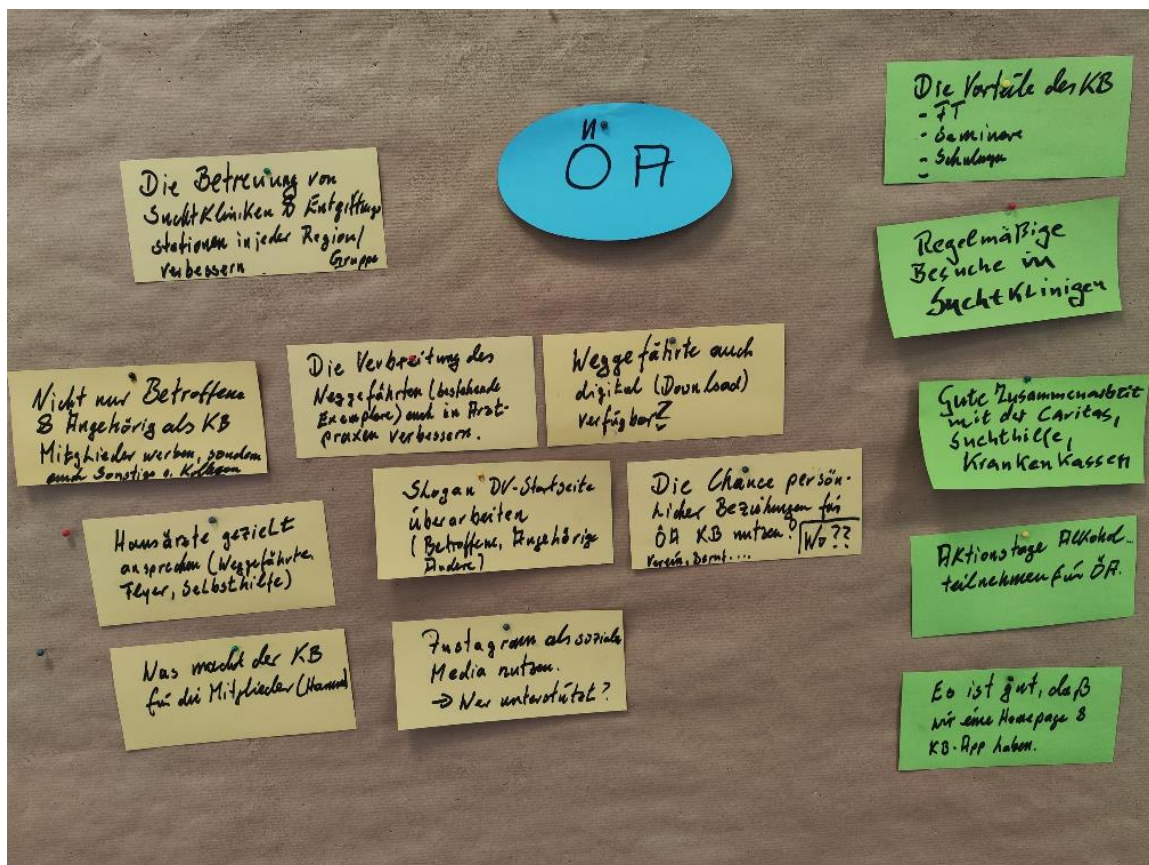 ÖA
Die Betreuung von
Suchtkliniken & Entgiftungs
stationen in jeder Region/
verbessern. Gruppe
Nicht nur Betroffene
& Angehörig als KB
Mitglieder werben, sondern
auch Sonstige o. Kollegen
Die Verbreitung des
Weggefährten (bestehende
Exemplare) auch in Arzt-
praxen verbessern.
Weggefährte auch
digital (Download)
verfügbar?
Hausärzte gezielt
ansprechen (Weggefährten,
Flyer, Selbsthilfe)
Slogan DV-Startseite
überarbeiten
(Betroffene, Angehörige
Andere)
Die Chance persön-
licher Beziehungen für
ÖA KB nutzen? Wo??
Verein, Beruf....
Was macht der KB
für die Mitglieder
Instagram als soziale
Media nutzen.
→ Wer unterstützt?
Die Vorteile des KB
- FT
- Seminare
- Schulungen
-
Regelmäßige
Besuche in
Suchtklinigen
Gute Zusammenarbeit
mit der Caritas,
Suchthilfe,
Krankenkassen
Aktionstage Alkohol
teilnehmen für ÖA.
Es ist gut, daß
wir eine Homepage &
KB-App haben.